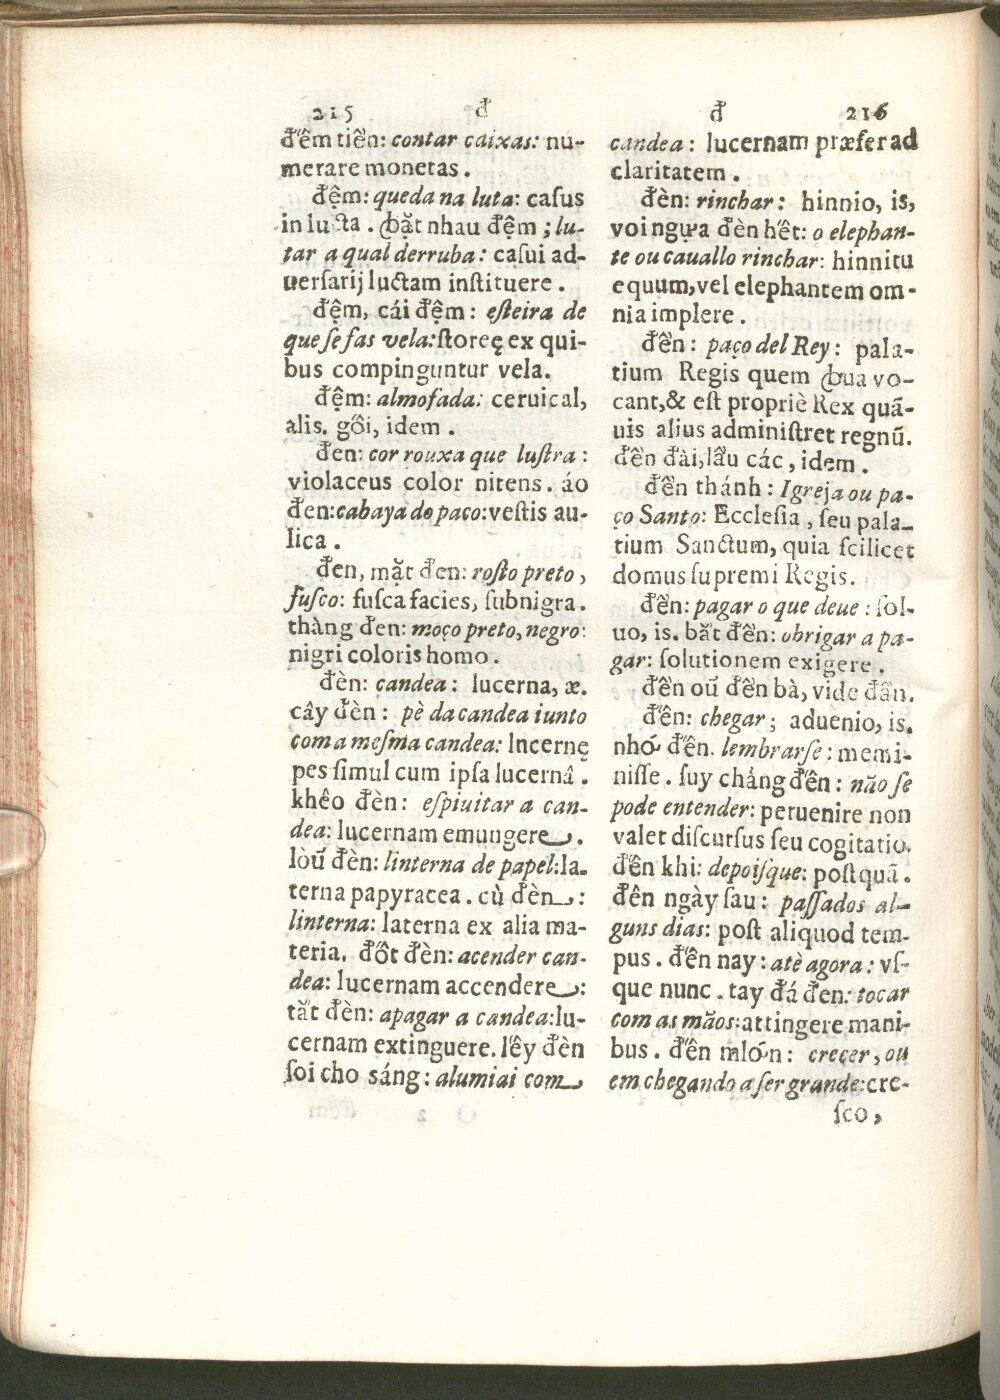 215 đ
đếm tiền: contar caixas: nu-
merare monetas.
đệm: queda na luta: caſus
in lucta. ꞗật nhau đệm; lu-
tar a qual derruba: caſui ad-
uerſarij luctam inſtituere.
đệm, cái đệm: eſteira de
que ſe fas vela: ſtoreę ex qui-
bus compinguntur vela.
đệm: almofada: ceruical,
alis. gối, idem.
đen: cor rouxa que luſtra:
violaceus color nitens. áo
đen: cabaya do paco: veſtis au-
lica.
đen, mặt đen: roſto preto,
fuſco: fuſca facies, ſubnigra.
thàng đen: moço preto, negro:
nigri coloris homo.
đèn: candea: lucerna, æ.
cây đèn: pè da candea iunto
com a meſma candea: lncernę
pes ſimul cum ipſa lucernâ.
khêo đèn: eſpiuitar a can-
dea: lucernam emungere.
lòũ đèn: linterna de papel: la-
terna papyracea. cù đèn:
linterna: laterna ex alia ma-
teria. đốt đèn: acender can-
dea: lucernam accendere:
tắt đèn: apagar a candea: lu-
cernam extinguere. lếy đèn
ſoi cho sáng: alumiai com
đ 216
candea: lucernam præfer ad
claritatem.
đèn: rinchar: hinnio, is,
voi ngựa đèn hết: o elephan-
te ou cauallo rinchar: hinnitu
equum, vel elephantem om-
nia implere.
đền: paço del Rey: pala-
tium Regis quem ꞗua vo-
cant, & eſt propriè Rex quã-
uis alius adminiſtret regnũ.
đền đài, lầu các, idem.
đền thánh: Igreja ou pa-
ço Santo: Eccleſia, ſeu pala-
tium Sanctum, quia ſcilicet
domus ſupremi Regis.
đền: pagar o que deue: ſol-
uo, is. bắt đền: obrigar a pa-
gar: ſolutionem exigere.
đền oũ đền bà, vide đần.
đến: chegar; aduenio, is.
nhớ đến. lembrarſe: memi-
niſſe. ſuy chảng đến: não ſe
pode entender: peruenire non
valet diſcurſus ſeu cogitatio.
đến khi: depoiſque: poſtquã.
đến ngày ſau: paſſados al-
guns dias: poſt aliquod tem-
pus. đến nay: atè agora: vſ-
que nunc. tay đá đen: tocar
com as mãos: attingere mani-
bus. đến mlớn: crecer, ou
em chegando a ſer grande: cre-
ſco,